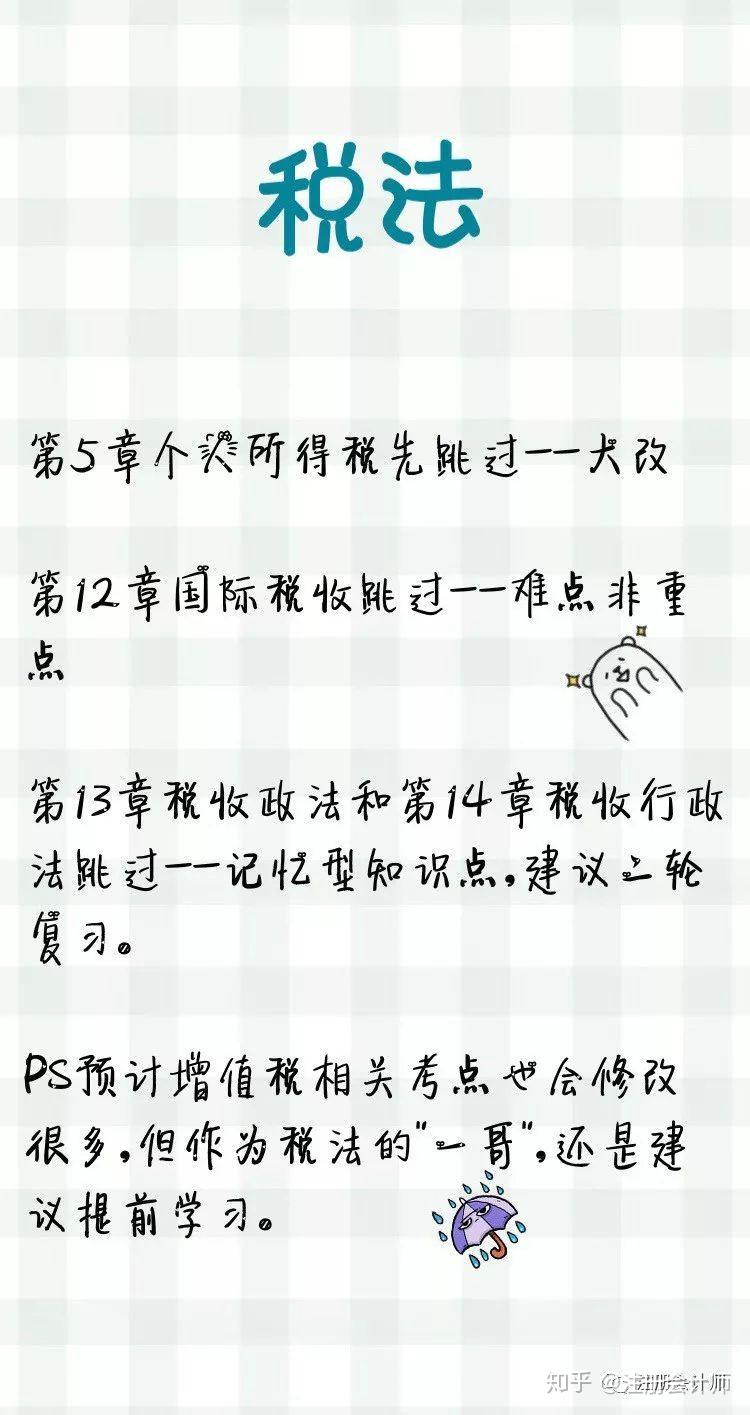 税法
第5章个人所得税先跳过——大改
第12章国际税收跳过——难点非重
点
第13章税收政法和第14章税收行政
法跳过——记忆型知识点,建议二轮
复习。
PS预计增值税相关考点也会修改
很多,但作为税法的"一哥",还是建
议提前学习。
知乎 @注册会计师